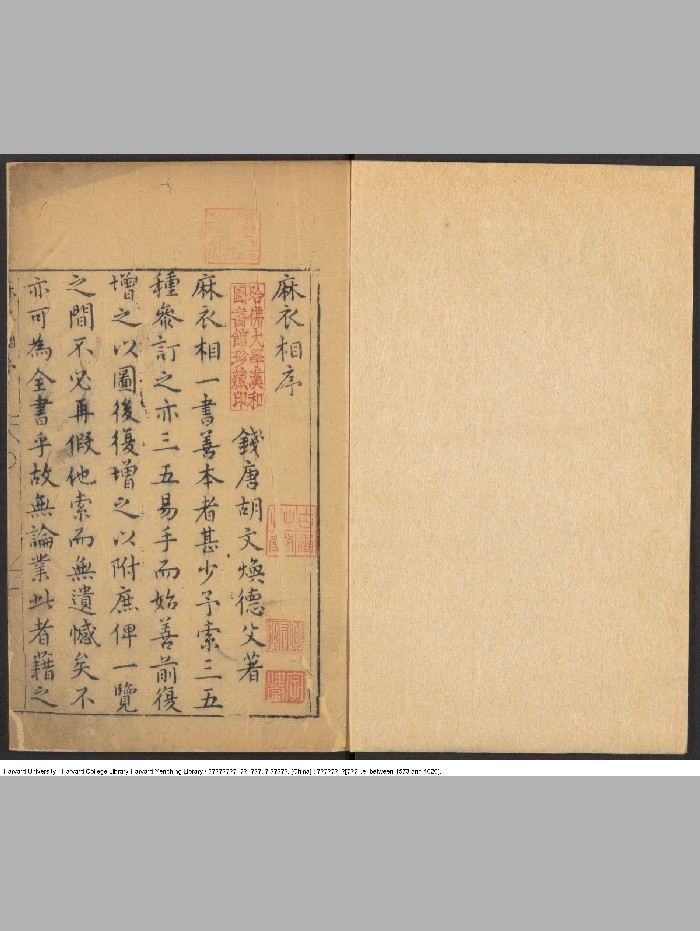 麻衣相序
錢唐胡文煥德父著
麻衣相一書善本者甚少予索三五
種參訂之亦三五易手而始善前復
增之以圖後復增之以附庶俾一覽
之間不必再假他索而無遺憾矣不
亦可為全書乎故無論業此者藉之
哈佛大學漢和
圖書館珍藏印
Harvard University - Harvard College Library Harvard-Yenching Library